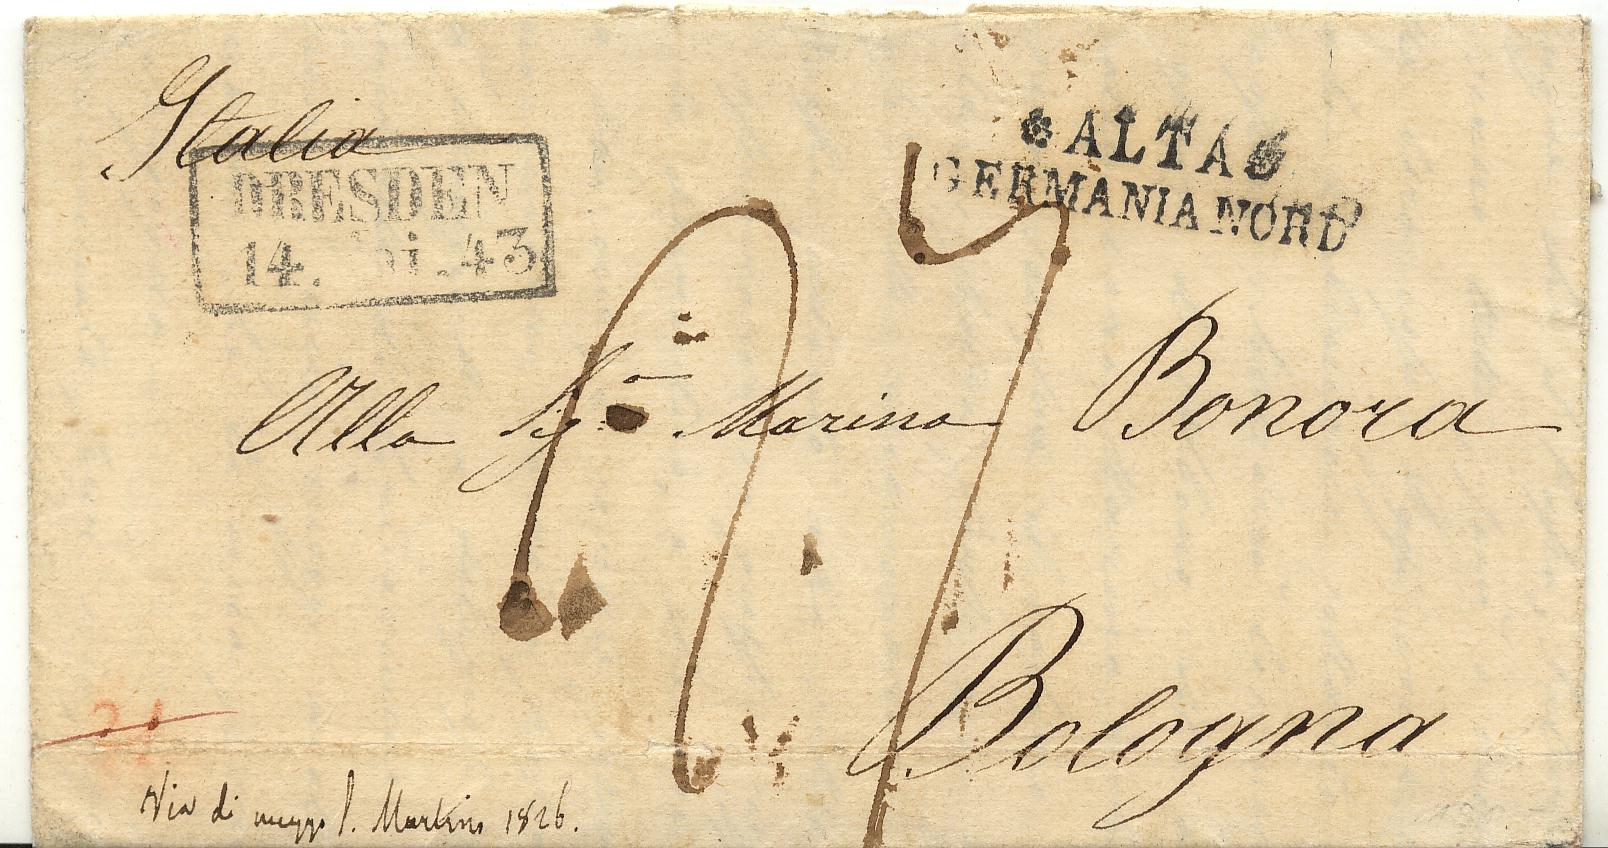 Italia
DRESDEN
14. Mai. 43
ALTA
GERMANIA NORD
Alla Sigra Marina Bonora
27
Bologna
21
Via di mezzo S. Martino 1826.